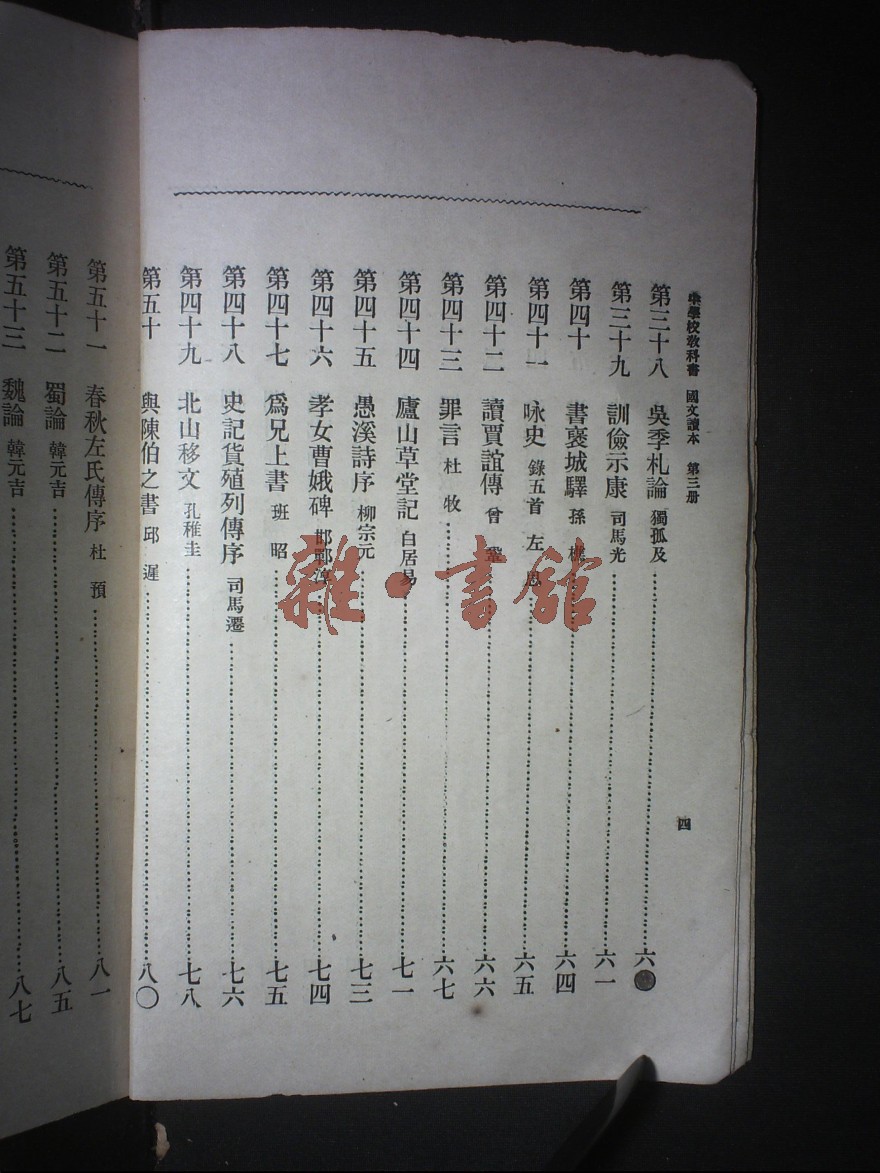 中學校教科書 國文讀本 第三册
四
第三十八 吳季札論 獨孤及 六
第三十九 訓儉示康 司馬光 六一
第四十 書襃城驛 孫樵 六四
第四十一 咏史 錄五首 左思 六五
第四十二 讀賈誼傳 曾鞏 六六
第四十三 罪言 杜牧 六七
第四十四 廬山草堂記 白居易 七一
第四十五 愚溪詩序 柳宗元 七三
第四十六 孝女曹娥碑 邯鄲淳 七四
第四十七 爲兄上書 班昭 七五
第四十八 史記貨殖列傳序 司馬遷 七六
第四十九 北山移文 孔稚圭 七八
第五十 與陳伯之書 邱遲 八〇
第五十一 春秋左氏傳序 杜預 八一
第五十二 蜀論 韓元吉 八五
第五十三 魏論 韓元吉 八七
雜·書館